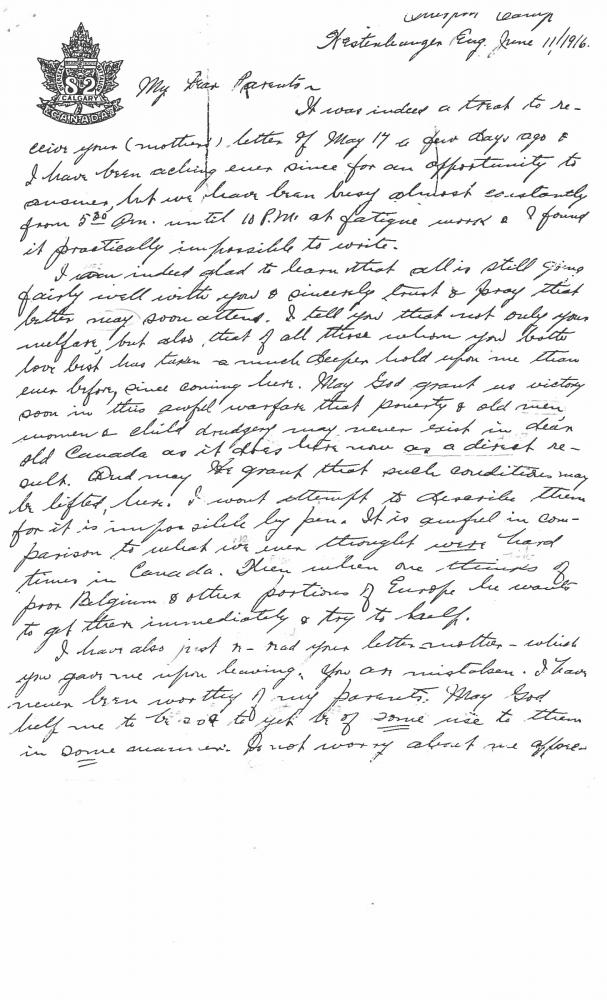 Camp
Westenhanger Eng. June 11/1916.
82
CALGARY
CANADA
My Dear Parents~
It was indeed a treat to re-
ceive your (mothers) letter of May 17 a few days ago &
I have been aching ever since for an opportunity to
answer, but we have been busy almost constantly
from 5 30 Am. until 10 P.M. at fatigue work & I found
it practically impossible to write.
I am indeed glad to learn that all is still going
fairly well with you & sincerely trust & pray that
better may soon attend. I tell you that not only your
welfare, but also that of all those whom you both
love best has taken a much deeper hold upon me than
ever before, since coming here. May God grant us victory
soon in this awful warfare that poverty & old men
women & child drudgery may never exist in dear
old Canada as it does here now as a direct re-
sult. And may He grant that such conditions may
be lifted, here. I wont attempt to describe them
for it is impossible by pen. It is awful in com-
parison to what we ever thought were hard
times in Canada. Then when one thinks of
poor Belgium & other portions of Europe he wants
to get there immediately & try to help.
I have also just r- read your letter-mother-which
you gave me upon leaving. You are mistaken. I have
never been worthy of my parents. May God
help me to be so & to yet be of some use to them
in some manner. Do not worry about me